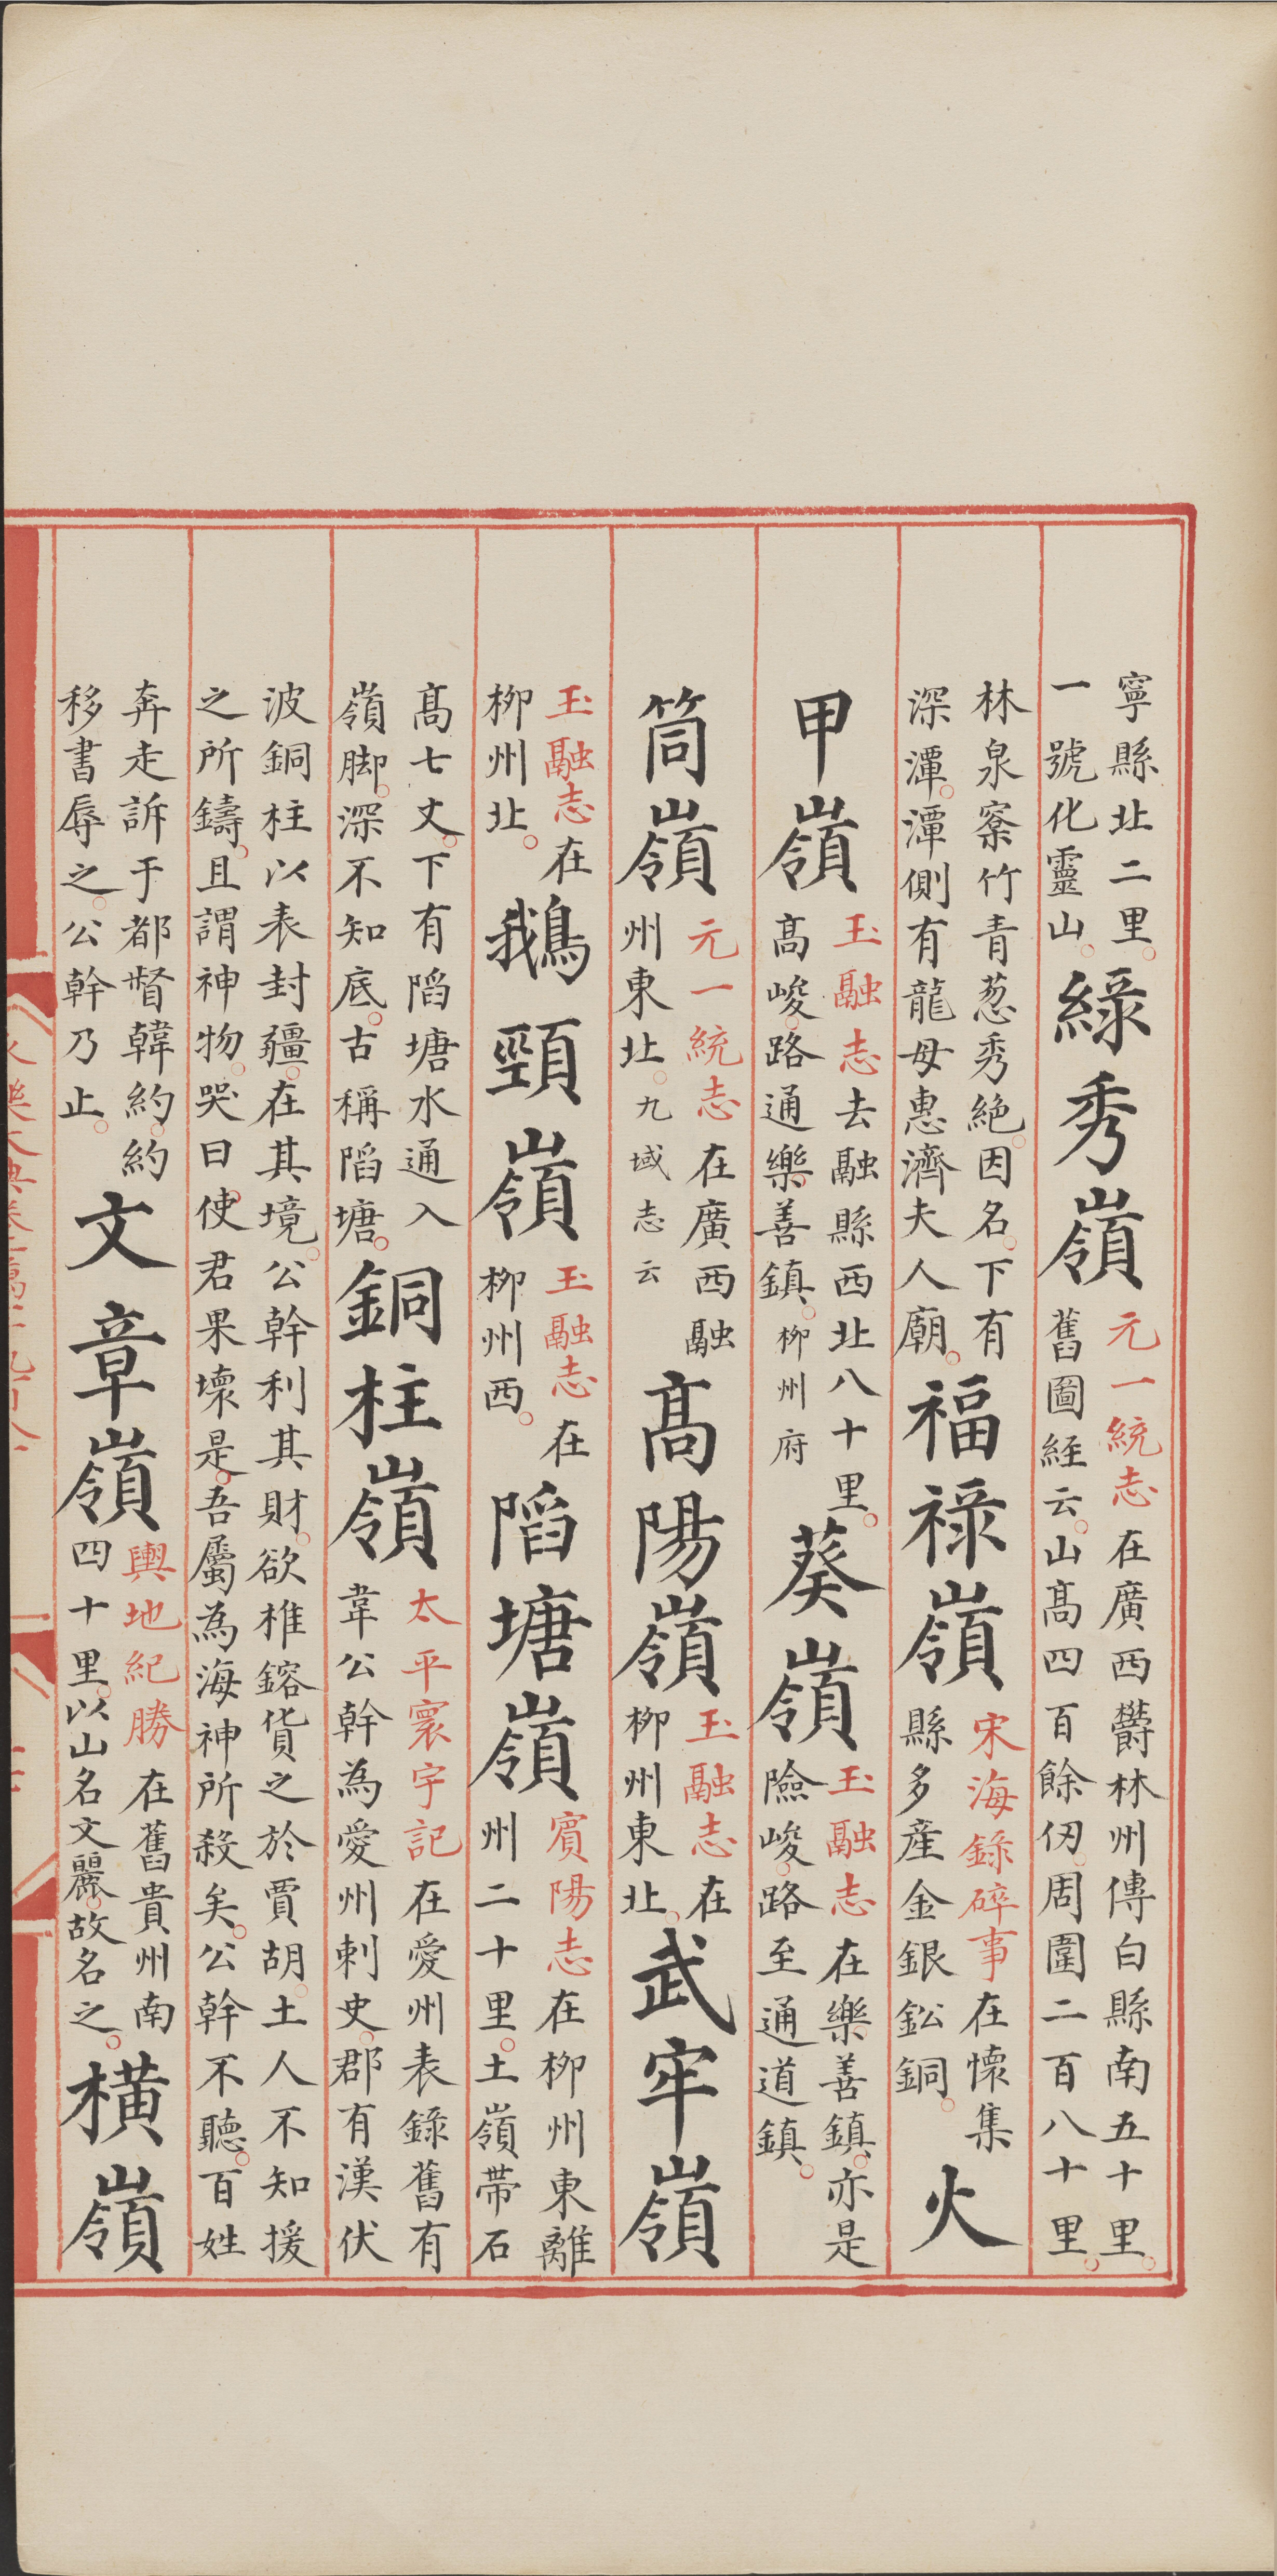 寧縣北二里。一號化靈山。綠秀嶺元一統志在廣西欝林州傳白縣南五十里。舊圖經云。山髙四百餘仞。周圍二百八十里。
林泉寮竹青葱秀絕。因名。下有深潭。潭側有龍母惠濟夫人廟。福祿嶺宋海錄碎事在懷集縣多産金銀鈆銅。火
甲嶺玉融志去融縣西北八十里。髙峻。路通樂善鎮。柳州府葵嶺玉融志在樂善鎮。亦是險峻。路至通道鎮。
筒嶺元一統志在廣西融州東北。九域志云髙陽嶺玉融志在柳州東北。武牢嶺
玉融志在柳州北。鵝頸嶺玉融志在柳州西。陷塘嶺賓陽志在柳州東離州二十里。土嶺帶石
髙七丈。下有陷塘水通入嶺脚。深不知底。古稱陷塘。銅柱嶺太平寰宇記在愛州表錄舊有韋公幹為愛州刺史。郡有漢伏
波銅柱以表封疆。在其境。公幹利其財。欲椎鎔貨之於賈胡。土人不知援之所鑄。且謂神物。哭曰。使君果壞是。吾屬為海神所殺矣。公幹不聽。百姓
奔走訴于都督韓約。約移書辱之。公幹乃止。文章嶺輿地紀勝在舊貴州南四十里。以山名文麗。故名之。橫嶺